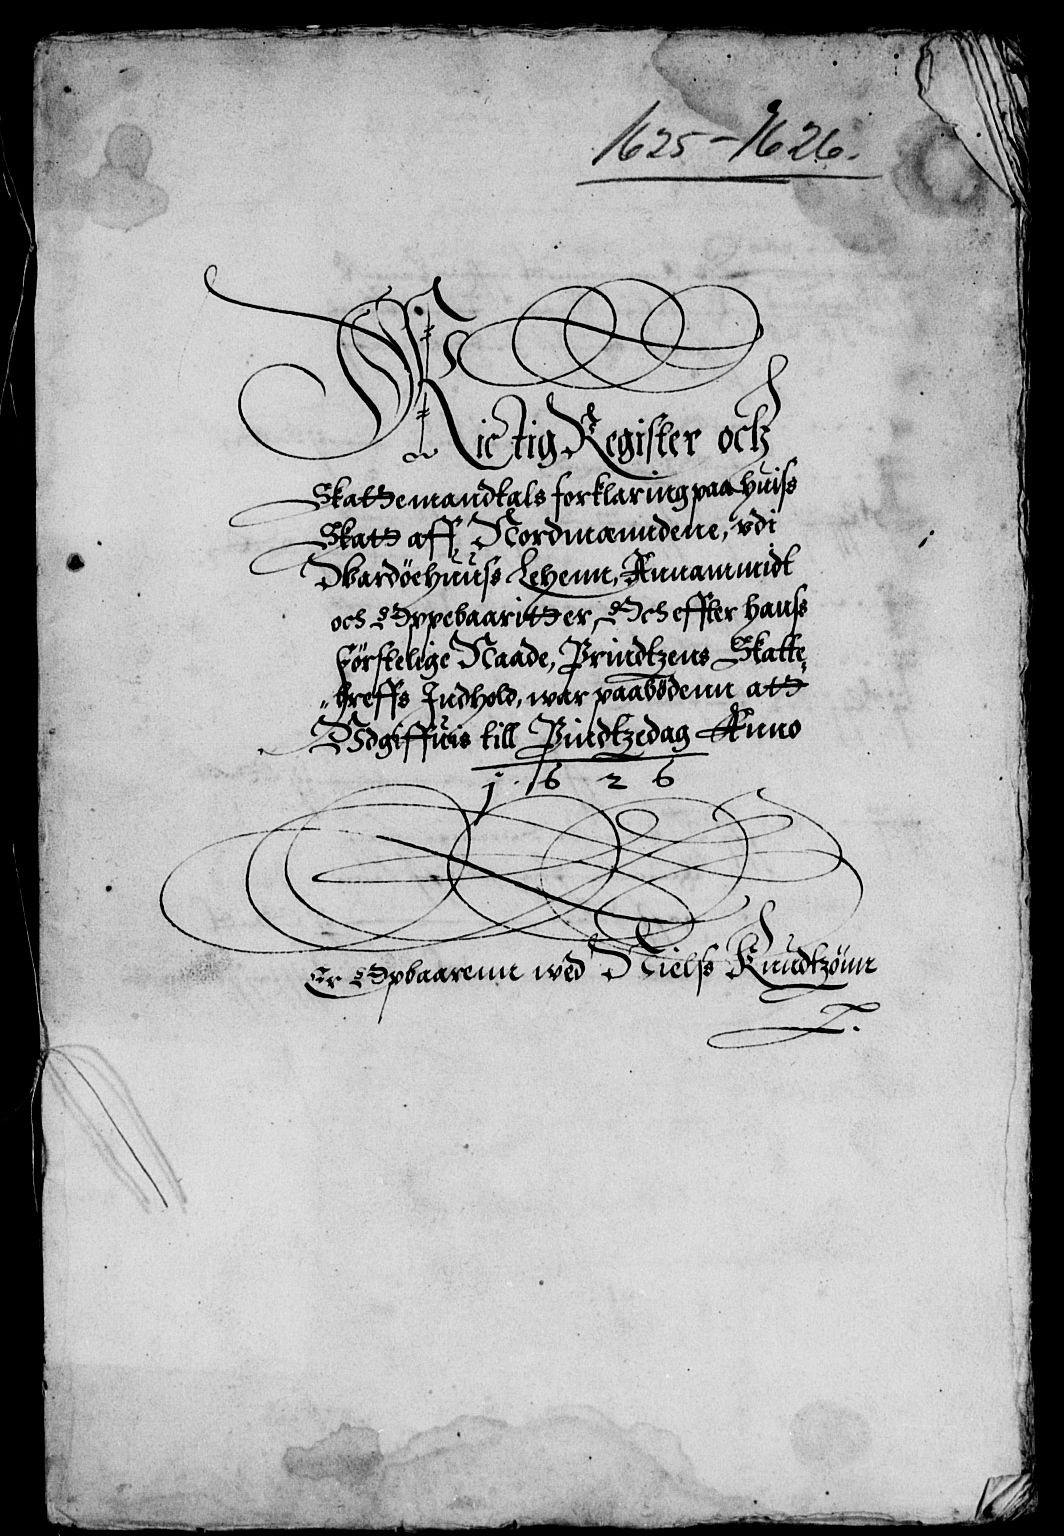 1625-1626.
Rictig Register och
Skattemandtals forklaring paa huiss
Skatt aff Nordmænndene, vdi
Wardöehuuss Lehenn, Annammidt
och Oppebaaritt er, Och effter hanss
Förstelige Naade, Prindtzens Skatte-
breffs Indhold, war paabödenn att
Vdgiffuis till Pindtzedag Anno
1626
Er Opbaarenn wed Nielss Knudtzönn